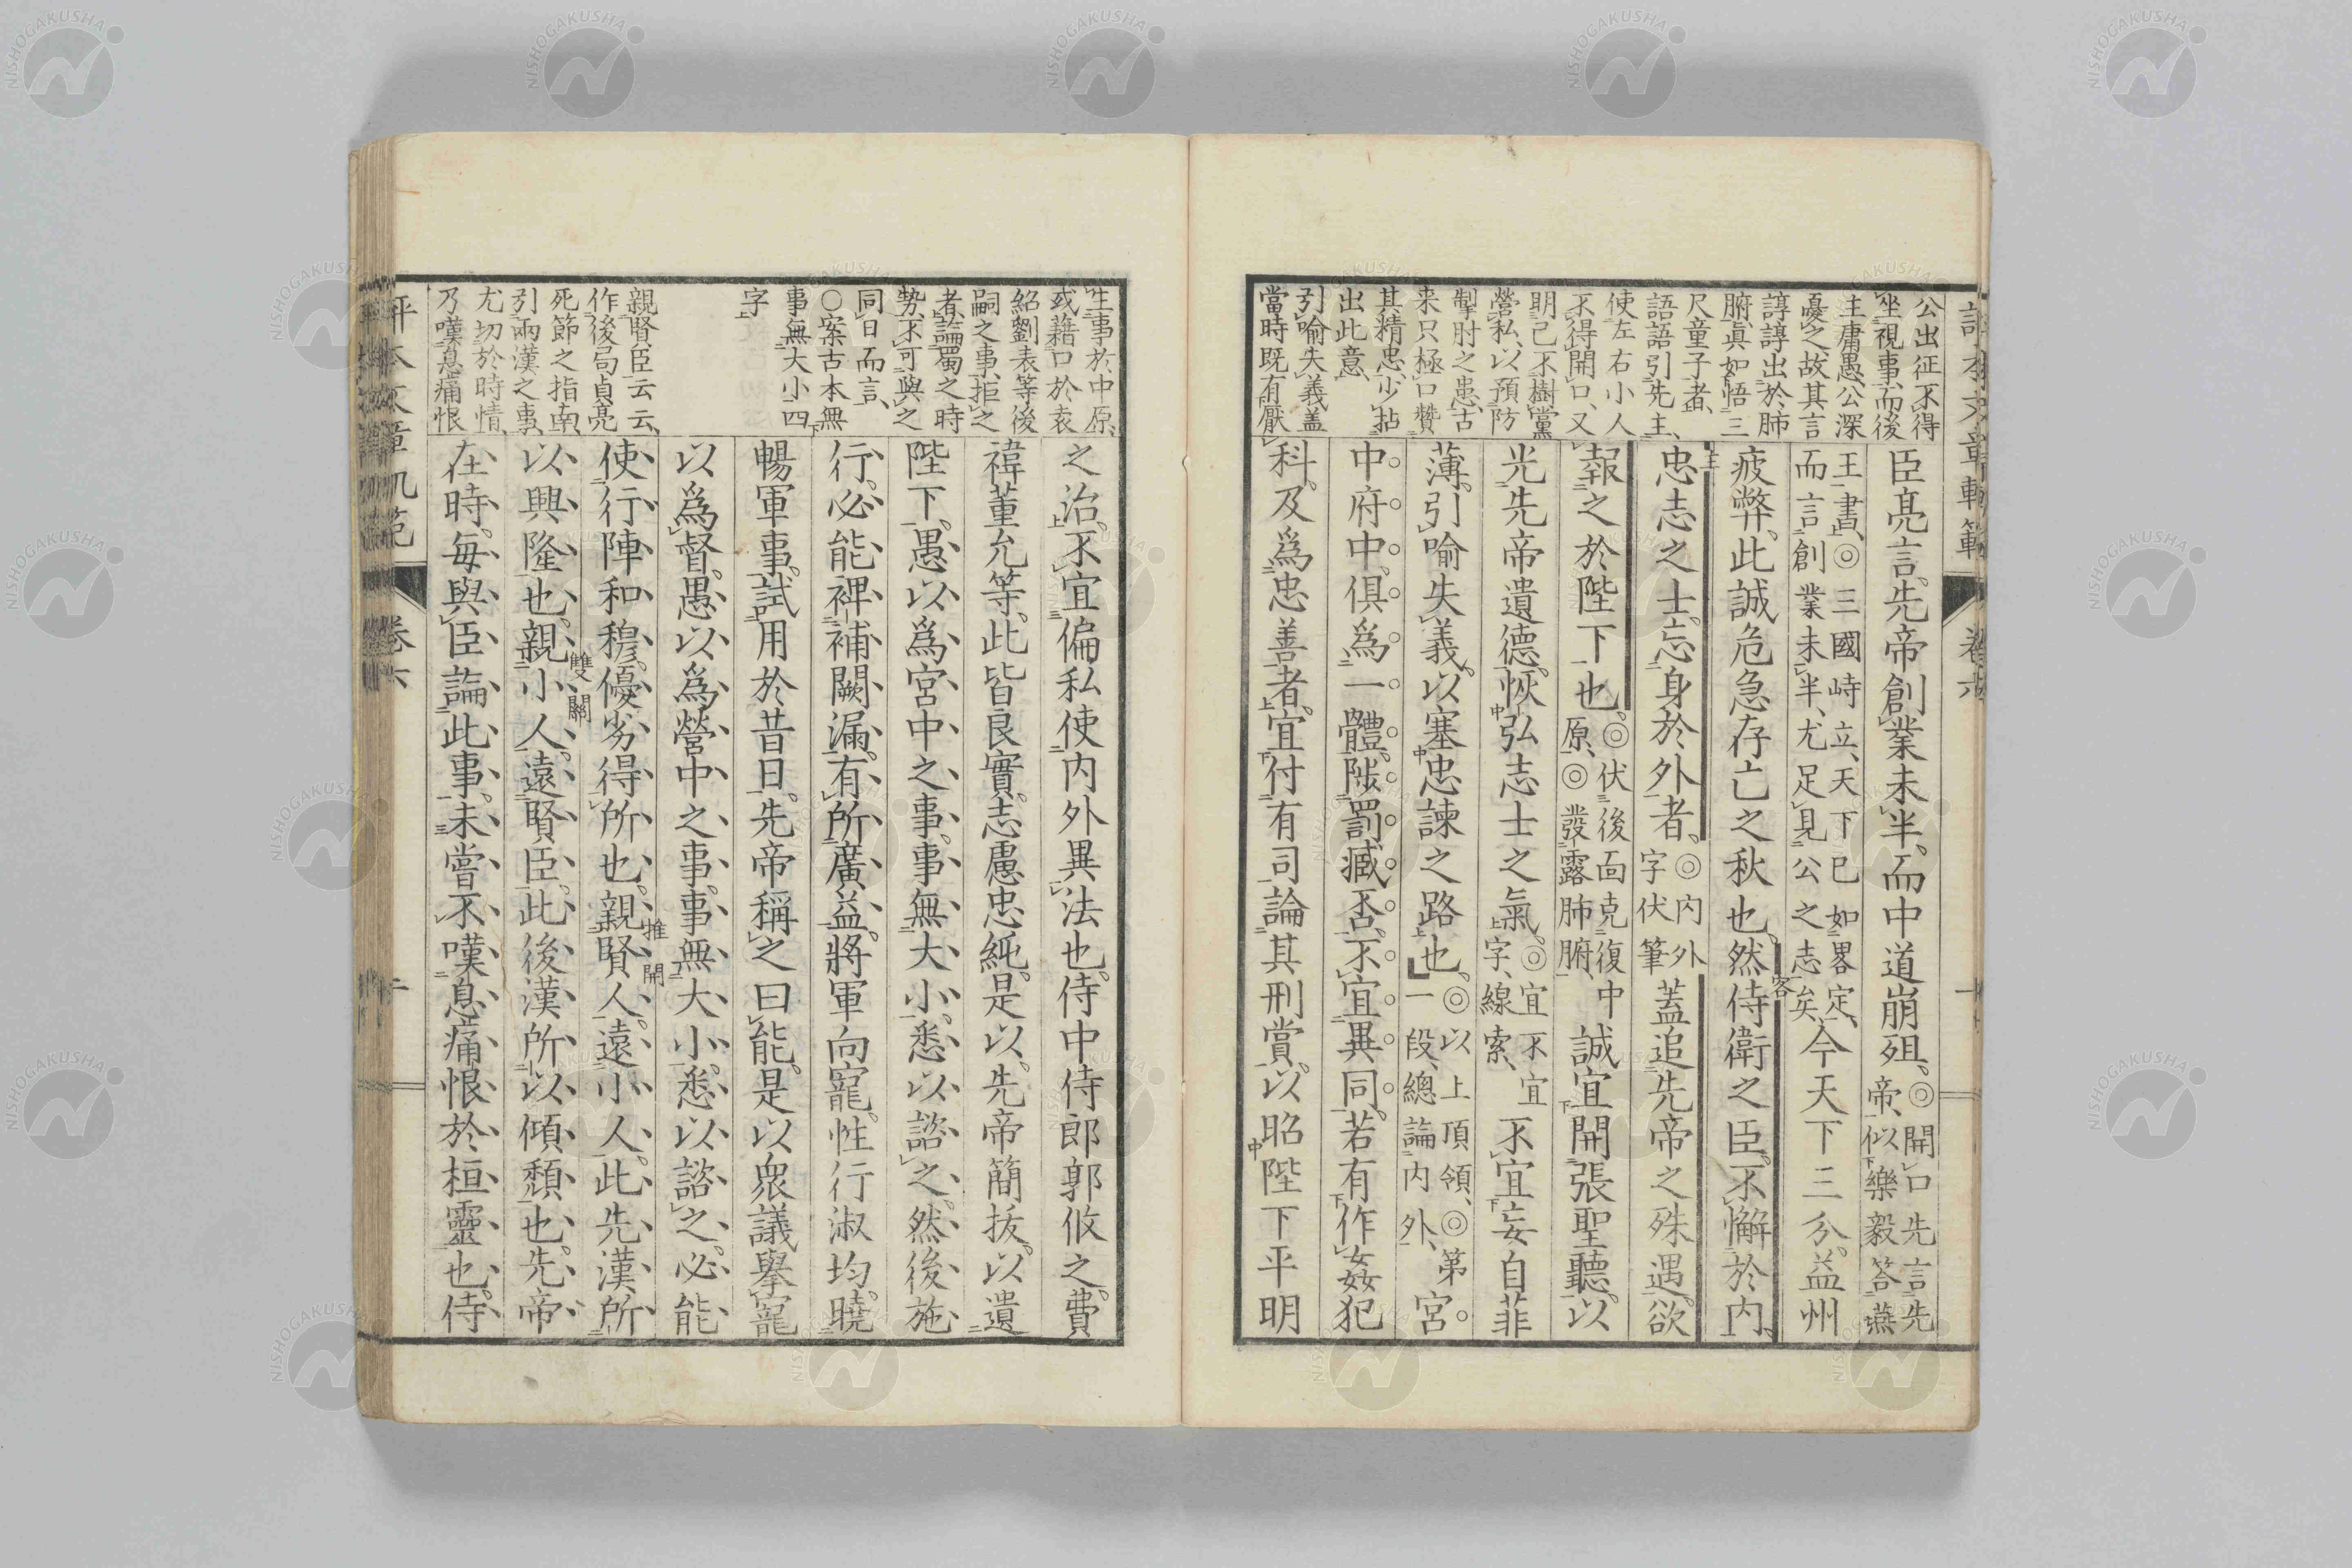 評本文章軌範
卷六
公出征不得
坐視事而後
主庸愚公深
憂之故其言
諄諄出於肺
腑眞如悟三
尺童子者、
語語引先主、
使左右小人
不得開口、又
明己不樹黨
營私、以預防
掣肘之患、古
来只極口贊
其精忠、少拈
出此意、
引喻失義蓋
當時既有厭
臣亮言。先帝創業未半、而中道崩殂、◎開口先言先
帝、似樂毅答燕
王書、◎三國峙立、天下已如畧定、
而言創業未半、尤足見公之志矣、今天下三分。益州
疲弊、此誠危急存亡之秋也。然侍衛之臣。不懈於内、
客
主
忠志之士。忘身於外者、◎内外
字伏筆
蓋追先帝之殊遇。欲
報之於陛下也。◎伏後面克復中
原、◎發露肺腑、
誠宜開張聖聽。以
光先帝遺德。恢弘志士之氣。◎宜不宜
字、線索、
不宜妄自菲
薄。引喻失義。以塞忠諫之路也。◎以上頂領、◎第
一段、總論内外、
宮
中府中、俱為一體。陟罰臧否。不宜異同。若有作姦犯
科。及為忠善者。宜付有司論其刑賞。以昭陛下平明
生事於中原、
或藉口於袁
紹劉表等後
嗣之事、拒之
者、論蜀之時
勢、不可與之
同日而言、
○案古本無
事無大小四
字
親賢臣云云、
作後局貞亮
死節之指南、
引兩漢之事、
尤切於時情、
乃嘆息痛恨
之治。不宜偏私使内外異法也。侍中侍郎郭攸之。費
禕董允等。此皆良實。志慮忠純。是以。先帝簡拔。以遺
陛下。愚以為宮中之事。事無大小。悉以諮之。然後施
行。必能裨補闕漏。有所廣益。將軍向寵。性行淑均。曉
暢軍事。試用於昔日。先帝稱之曰能。是以衆議舉寵
以為督。愚以為營中之事。事無大小。悉以諮之。必能
使行陣和穆。優劣得所也。親賢人。遠小人。此先漢所
推開
雙關
以興隆也。親小人。遠賢臣。此後漢所以傾頹也。先帝
在時。毎與臣論此事。未嘗不嘆息痛恨於桓靈也。侍
評本文章軌範
卷六
NISHOGAKUSHA